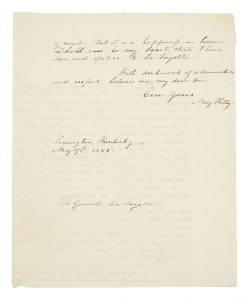 of mind. But it is a happiness, an honour
to my heart, that I have
seen and spoken to La Fayette.
With sentiment of admiration
and respect, believe me, my dear Sir.
Ever Yours
Mary
Lexington, Kentucky
May 17th 1825.
To General La Fayette